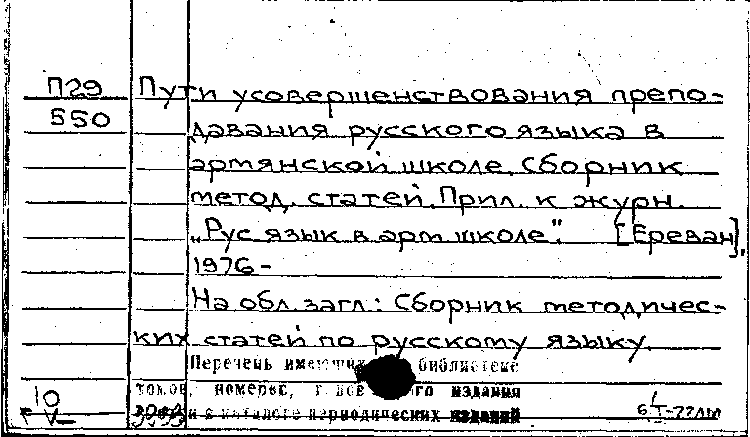 П29 Пути усовершенствования препо-
550 давания русского языка в
армянской школе. Сборник
метод. статей. Прил. к журн.
„Рус язык в арм школе". [Ереван],
1976-
На обл. загл.: Сборник методичес-
ких статей по русскому языку.
Перечень библиотеке
томов, номеров, г все го издания
и в каталоге периодических изданий
10